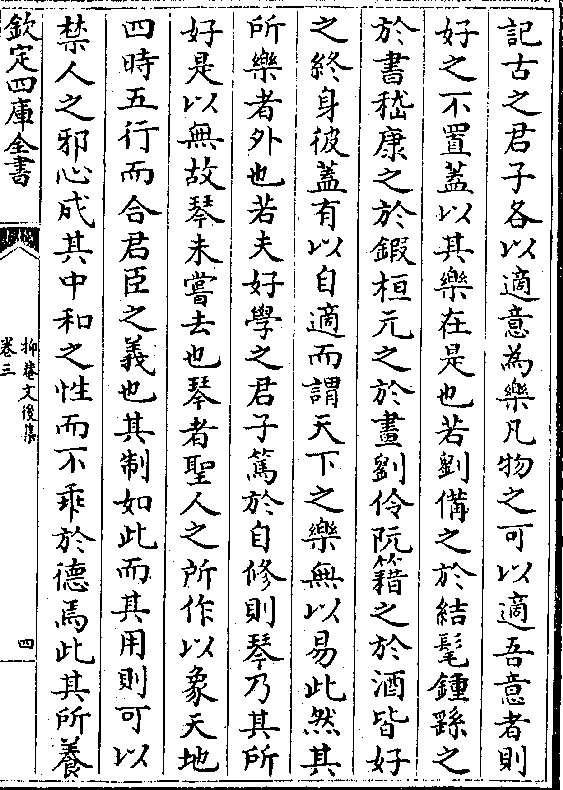 記古之君子各以適意為樂凡物之可以適吾意者則
好之不置蓋以其樂在是也若劉備之於結髦鍾繇之
於書嵇康之於鍜桓元之於畫劉伶阮籍之於酒皆好
之終身彼蓋有以自適而謂天下之樂無以易此然其
所樂者外也若夫好學之君子篤於自修則琴乃其所
好是以無故琴未嘗去也琴者聖人之所作以象天地
四時五行而合君臣之義也其制如此而其用則可以
禁人之邪心成其中和之性而不乖於德焉此其所養
欽定四庫全書
抑菴文後集
卷三
四